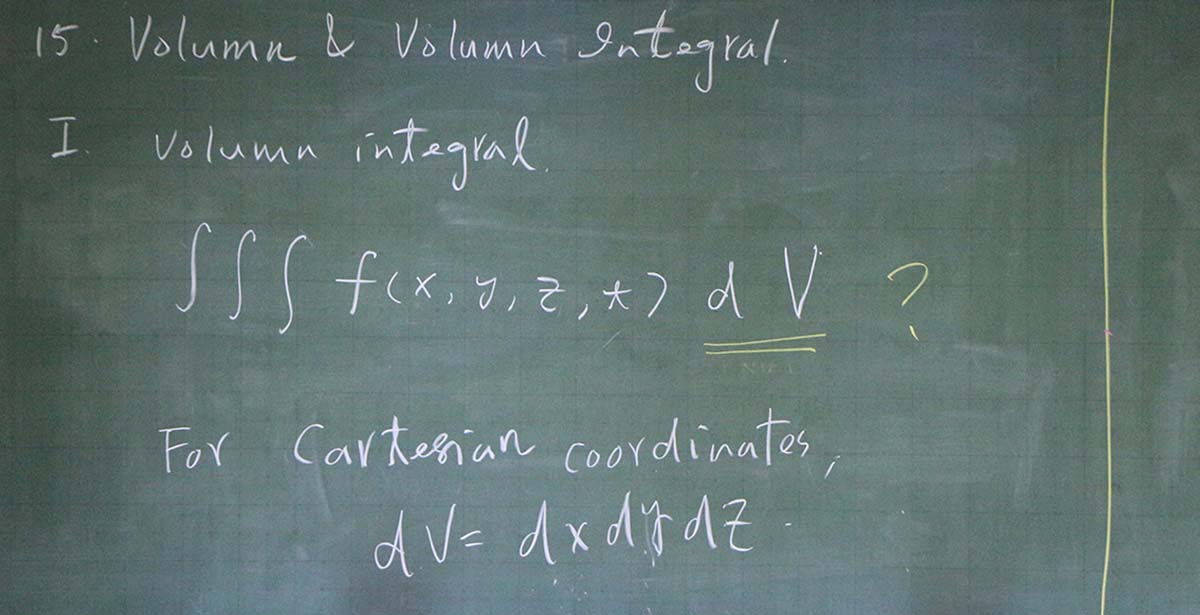 15. Volumn & Volumn Integral.
I. volumn integral.
∫∫∫ f(x, y, z, t) d V ?
For Cartesian coordinates,
dV= dxdydz.